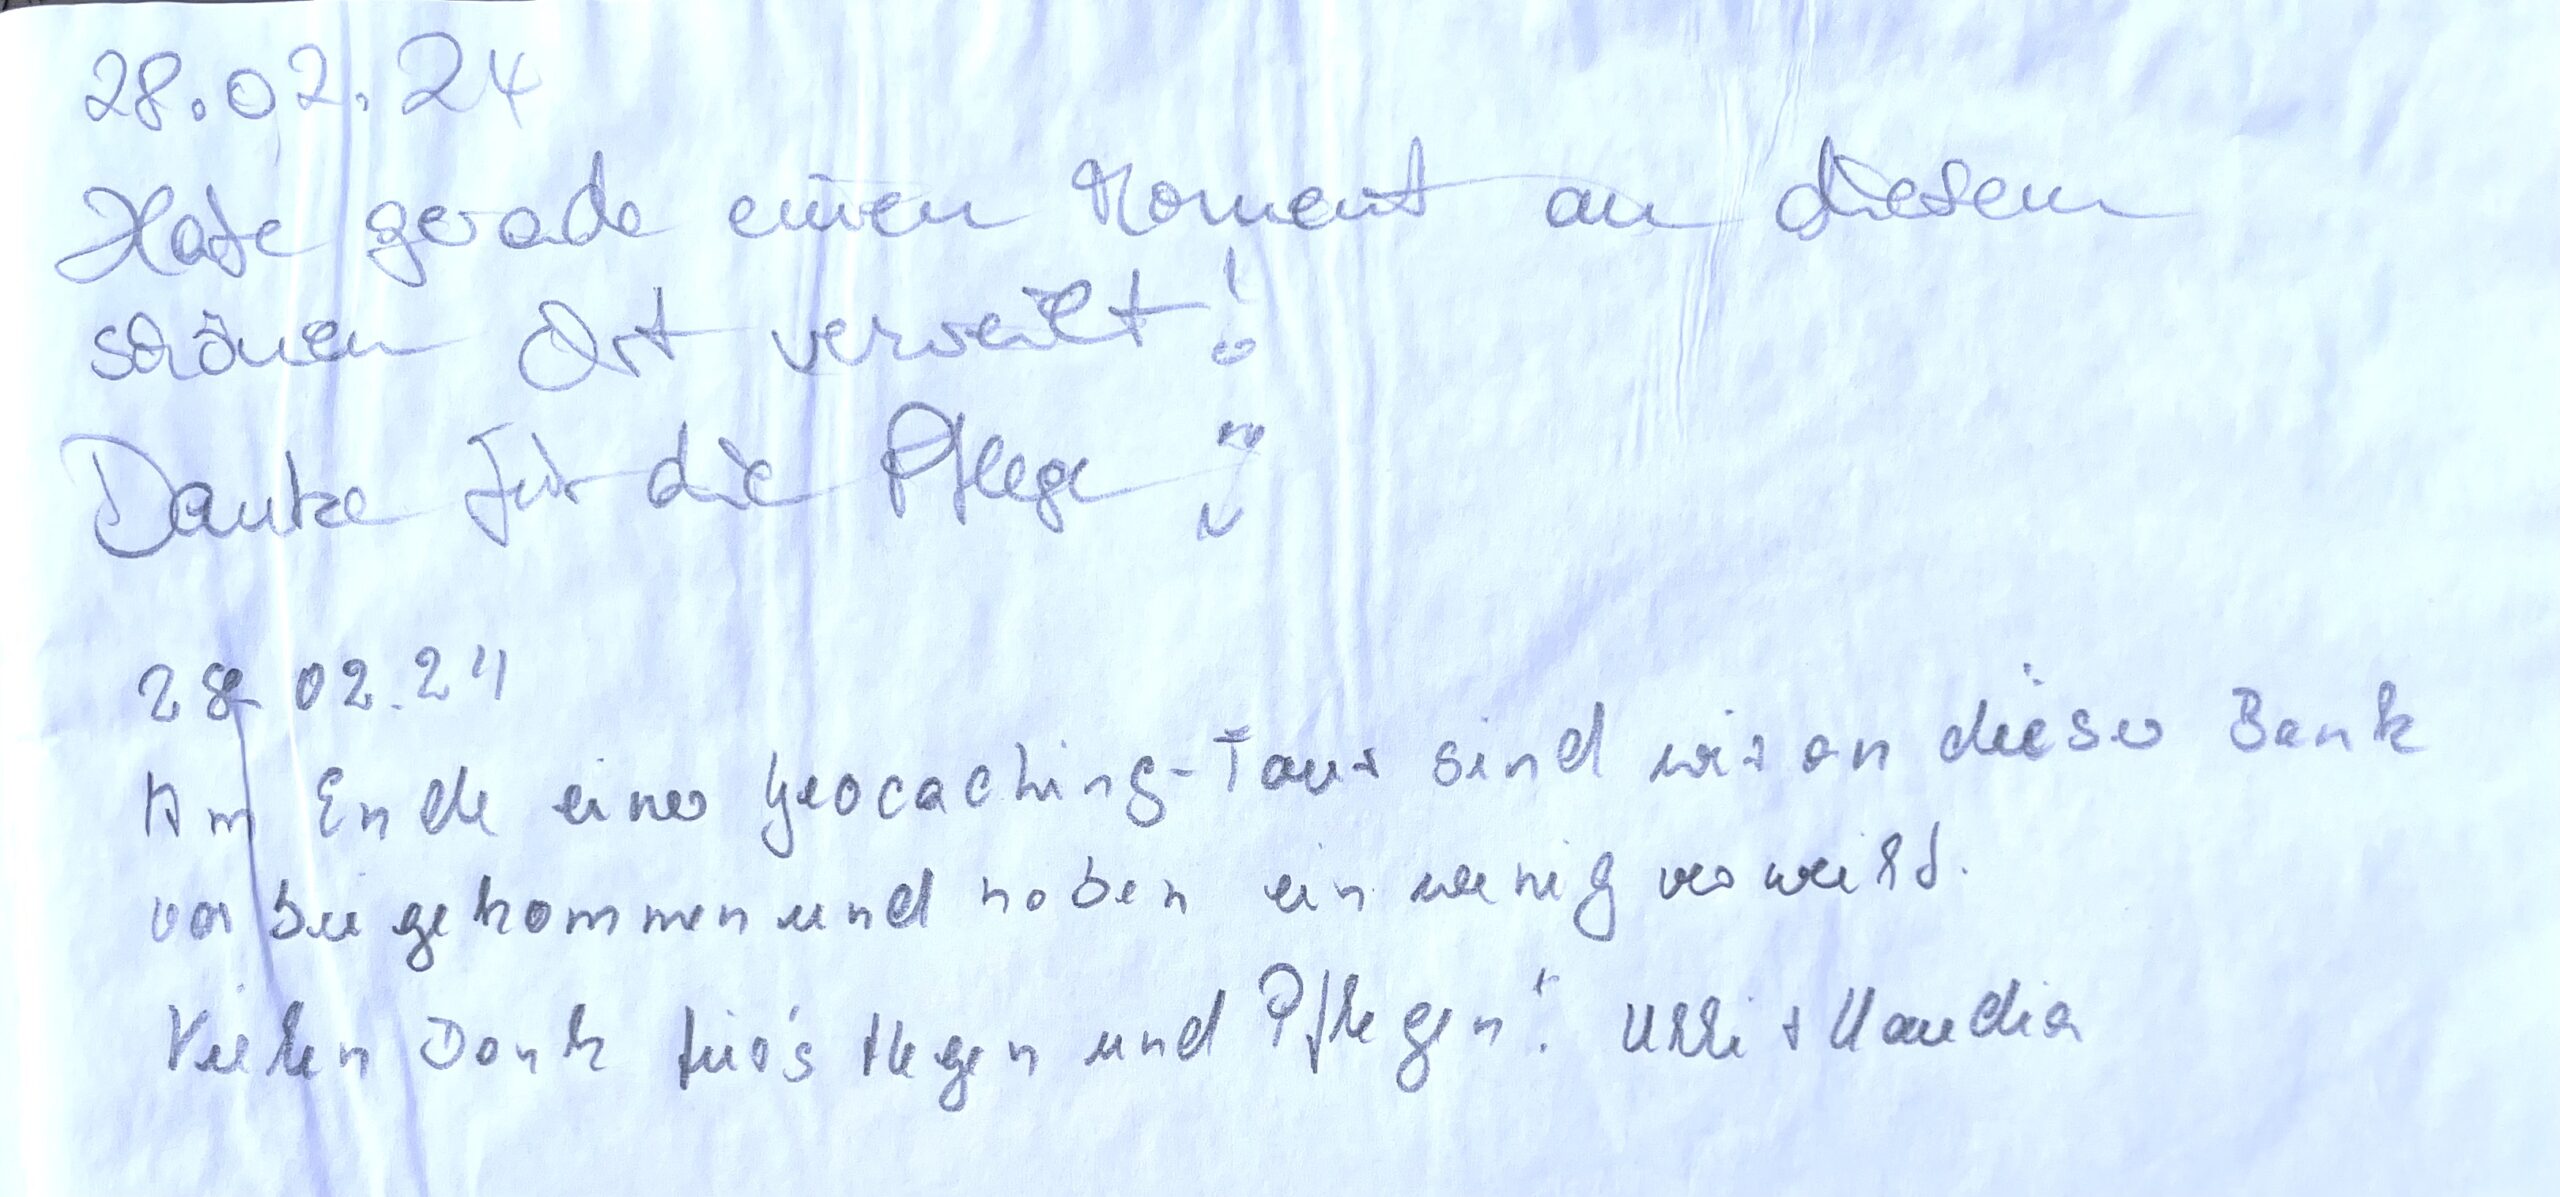 28.02.24
Habe gerade einen Moment an diesem
schönen Ort verweilt!
Danke für die Pflege!
28.02.24
Am Ende einer Geocaching-Tour sind wir an dieser Bank
vorbei gekommen und haben ein wenig verweilt.
Vielen Dank für's Hegen und Pflegen! Ulli + Claudia